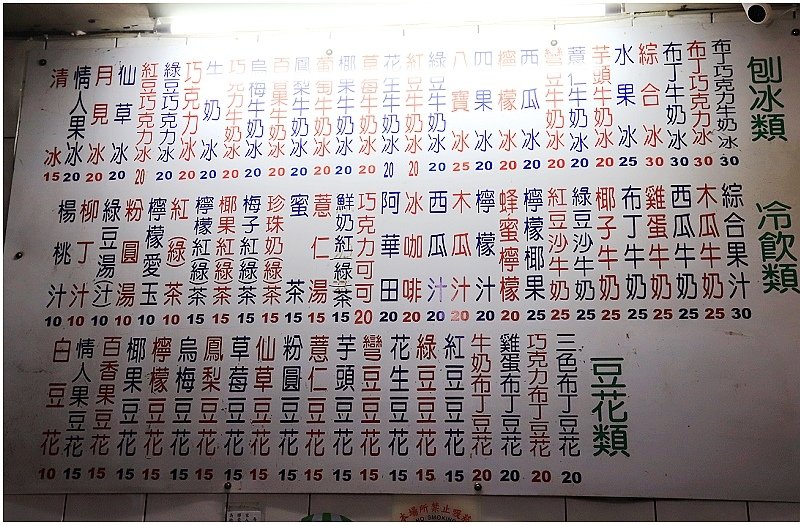 刨冰類
布丁巧克力牛奶冰 30
布丁巧克力冰 30
布丁牛奶冰 30
綜合冰 30
水果冰 25
芋頭牛奶冰 20
薏仁牛奶冰 20
彎豆牛奶冰 20
西瓜冰 20
檸檬冰 20
四果冰 20
八寶冰 25
綠豆牛奶冰 20
紅豆牛奶冰 20
花生牛奶冰 20
草莓牛奶冰 20
椰果牛奶冰 20
葡萄牛奶冰 20
鳳梨牛奶冰 20
百香果牛奶冰 20
烏梅牛奶冰 20
巧克力牛奶冰 20
牛奶冰 20
巧克力冰 20
綠豆巧克力冰 20
紅豆巧克力冰 20
仙草冰 20
月見冰 20
情人果冰 20
清冰 15
冷飲類
綜合果汁 30
木瓜牛奶 25
西瓜牛奶 25
雞蛋牛奶 25
布丁牛奶 25
椰子牛奶 25
綠豆沙牛奶 25
紅豆沙牛奶 25
檸檬椰果 25
蜂蜜檸檬 20
檸檬汁 20
木瓜汁 25
西瓜汁 20
冰咖啡 20
阿華田 20
巧克力可可 20
鮮奶紅(綠)茶 15
薏仁湯 15
蜜茶 15
珍珠奶(綠)茶 15
梅子紅(綠)茶 15
椰果紅(綠)茶 15
檸檬紅(綠)茶 15
紅(綠)茶 10
檸檬愛玉 10
粉圓湯 10
綠豆湯(汁) 10
柳丁汁 10
楊桃汁 10
豆花類
三色布丁豆花 20
巧克力布丁豆花 20
雞蛋布丁豆花 20
牛奶布丁豆花 20
紅豆豆花 15
綠豆豆花 15
花生豆花 15
彎豆豆花 15
芋頭豆花 15
薏仁豆花 15
粉圓豆花 15
仙草豆花 15
草莓豆花 15
鳳梨豆花 15
烏梅豆花 15
檸檬豆花 15
椰果豆花 15
百香果豆花 15
情人果豆花 15
白豆花 10
本場所禁止吸菸
NO SMOKING